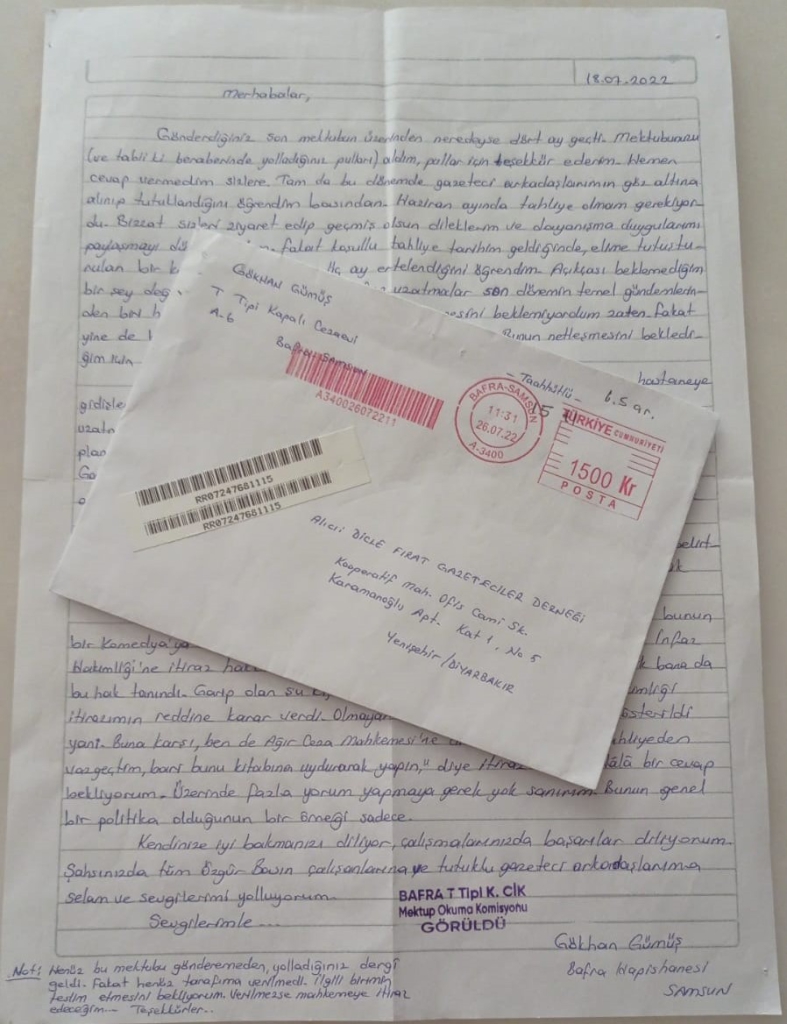 18.07.2022
Merhabalar,
Gönderdiğiniz son mektubun üzerinden neredeyse dört ay geçti. Mektubunuzu
(ve tabii ki beraberinde yolladığınız pulları) aldım, pullar için teşekkür ederim. Hemen
cevap vermedim sizlere. Tam da bu dönemde gazeteci arkadaşlarımın göz altına
alınıp tutuklandığını öğrendim basından. Haziran ayında tahliye olmam gerekiyor-
du. Bizzat sizleri ziyaret edip geçmiş olsun dileklerim ve dayanışma duygularımı
paylaşmayı fakat koşullu tahliye tarihim geldiğinde, elime tutuştu-
rulan bir üç ay ertelendiğini öğrendim. Açıkçası beklemediğim
bir şey değ uzatmalar son dönemin temel gündemlerin-
den biri beklemiyordum zaten. Fakat
yine de Bunun netleşmesini bekledi-
ğim için
hastaneye
gidişle
uzatı
plan
belirt-
bunun
bir Komedya'ya İnfaz
Hakimliği'ne itiraz hak bana da
bu hak tanındı. Garip olan şu
itirazımın reddine karar verdi. Olmayan österildi
yani. Buna karşı, ben de Ağır Ceza Mahkemesi'ne ahliyeden
vazgeçtim, bari bunu kitabına uydurarak yapın," diye itiraz hâlâ bir cevap
bekliyorum. Üzerinde fazla yorum yapmaya gerek yok sanırım. Bunun genel
bir politika olduğunun bir örneği sadece.
Kendinize iyi bakmanızı diliyor, çalışmalarınızda başarılar diliyorum.
Şahsınızda tüm Özgür Basın çalışanlarına ve tutuklu gazeteci arkadaşlarıma
selam ve sevgilerimi yolluyorum.
Sevgilerimle...
BAFRA T Tipi K. CİK
Mektup Okuma Komisyonu
GÖRÜLDÜ
Gökhan Gümüş
Bafra Hapishanesi
SAMSUN
Not: Henüz bu mektubu gönderemeden, yolladığınız dergi
geldi. Fakat henüz tarafıma verilmedi. İlgili birimin
teslim etmesini bekliyorum. Verilmezse mahkemeye itiraz
edeceğim... Teşekkürler..
GÖKHAN GÜMÜŞ
T Tipi Kapalı Cezaevi
A-6
Bafra/SAMSUN
A340026072211
- Taahhütlü - 6.5 gr.
BAFRA-SAMSUN
11:31
26.07.22
A-3400
TÜRKİYE CUMHURİYETİ
1500 Kr
POSTA
RR07247681115
RR07247681115
Alıcı DİCLE FIRAT GAZETECİLER DERNEĞİ
Kooperatif mah. Ofis Cami Sk.
Karamanoğlu Apt. Kat 1, No 5
Yenişehir/DİYARBAKIR